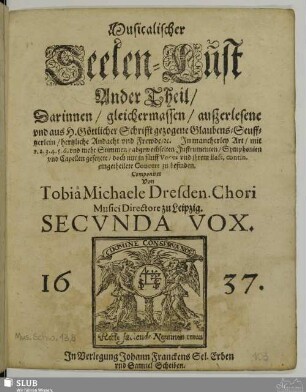 Musicalischer
Seelen-Lust
Ander Theil/
Darinnen/ gleichermassen/ außerlesene
vnd aus H. Göttlicher Schrifft gezogene Glaubens-Seuff-
tzerlein/ hertzliche Andacht vnd Frewde/ 2c. In mancherley Art/ mit
1. 2. 3. 4. 5. 6. vnd mehr Stimmen/ abgewechselten Instrumenten/ Symphonien
vnd Capellen gesetzet/ doch nur in fünff Vocum vnd ihrem Bass. contin.
eingetheilet zu befinden.
Componiret
Von
Tobiâ Michaele Dresden. Chori
Musici Directore zu Leipzig.
SECVNDA VOX.
16 37.
In Verlegung Johann Franckens Sel. Erben
vnd Samuel Scheiben.
SLUB